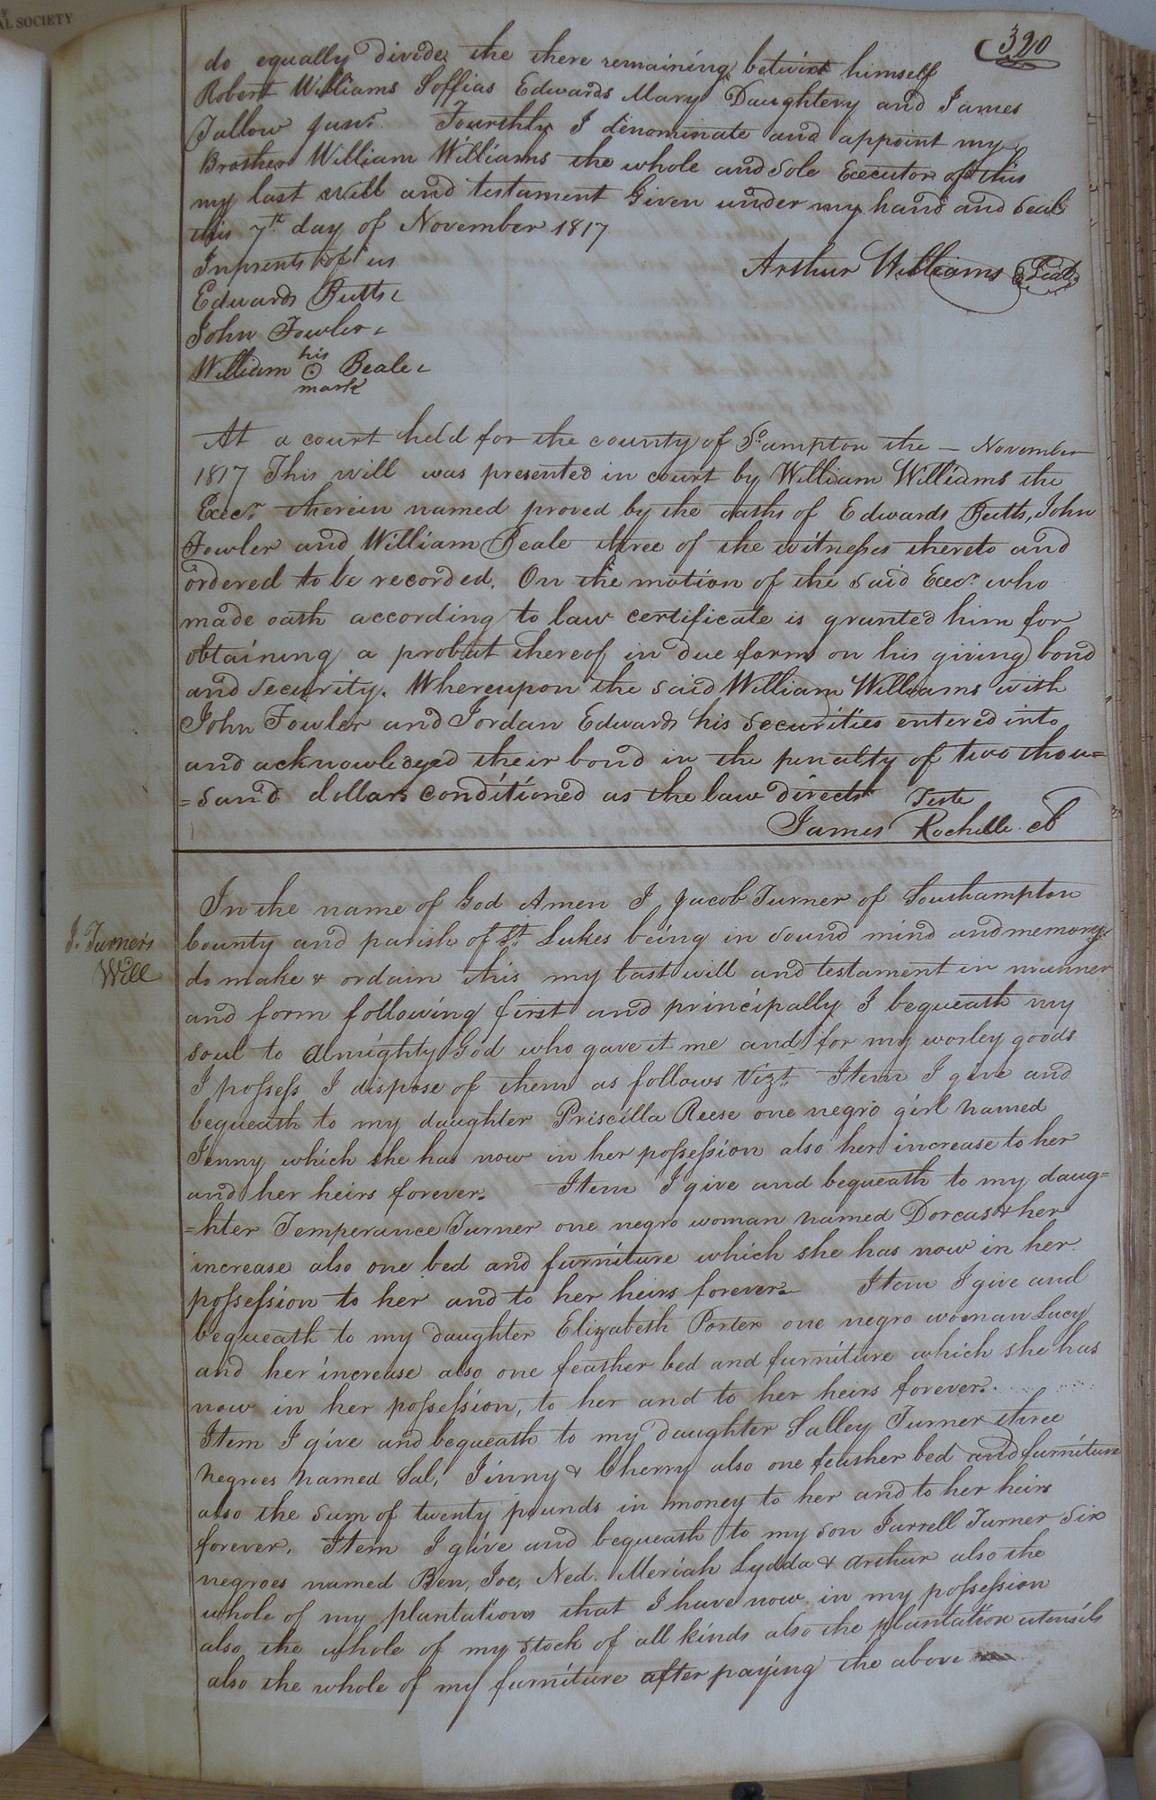 AL SOCIETY
320
do equally divide the there remaining betwixt himself
Robert Williams Soffias Edwards Mary Daughtery and James
Tallow junr. Fourthly I dinominate and appoint my
Brother William Williams the whole and sole Executor of this
my last will and testament Given under my hand and seal
this 7th day of November 1817
Inprents of us
Arthur Williams Seal
Edwards Butts
John Fowler
William his Beale
mark
At a court held for the county of So.ampton the — November
1817 This will was presented in court by William Williams the
Execr. therein named proved by the oaths of Edwards Butts, John
Fowler and William Beale three of the witnesses thereto and
ordered to be recorded. On the motion of the said Execr. who
made oath according to law certificate is granted him for
obtaining a probat thereof in due form on his giving bond
and security. Whereupon the said William Williams with
John Fowler and Jordan Edwards his securities entered into
and acknowledged their bond in the penalty of two thou=
=sand dollars conditioned as the law directs Teste
James Rochelle
In the name of God Amen I Jacob Turner of Southampton
J. Turner's
Will
County and parish of St. Lukes being in sound mind and memory
do make & ordain this my last will and testament in manner
and form following first and principally I bequeath my
soul to almighty God who gave it me and for my worley goods
I possess I dispose of them as follows Vizt. Item I give and
bequeath to my daughter Priscilla Reese one negro girl named
Jenny which she has now in her possession also her increase to her
and her heirs forever. Item I give and bequeath to my daug=
=hter Temperance Turner one negro woman named Dorcas & her
increase also one bed and furniture which she has now in her
possession to her and to her heirs forever Item I give and
bequeath to my daughter Elizabeth Porter one negro woman Lucy
and her increase also one feather bed and furniture which she has
now in her possession, to her and to her heirs forever.
Item I give and bequeath to my daughter Salley Turner three
negroes named Sal, Jinny & Cherry also one feather bed and furniture
also the sum of twenty pounds in money to her and to her heirs
forever. Item I give and bequeath to my son Jarrell Turner six
negroes named Ben, Joe, Ned. Meriah Lydda & Arthur also the
whole of my plantations that I have now in my possession
also the whole of my stock of all kinds also the plantation utensils
also the whole of my furniture after paying the above